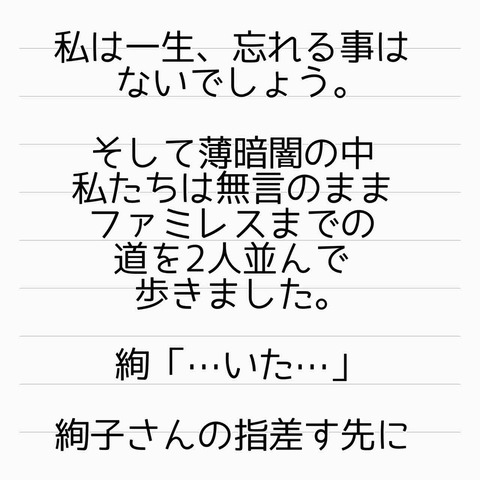 私は一生、忘れる事は
ないでしょう。
そして薄暗闇の中
私たちは無言のまま
ファミレスまでの
道を2人並んで
歩きました。
絢「…いた…」
絢子さんの指差す先に